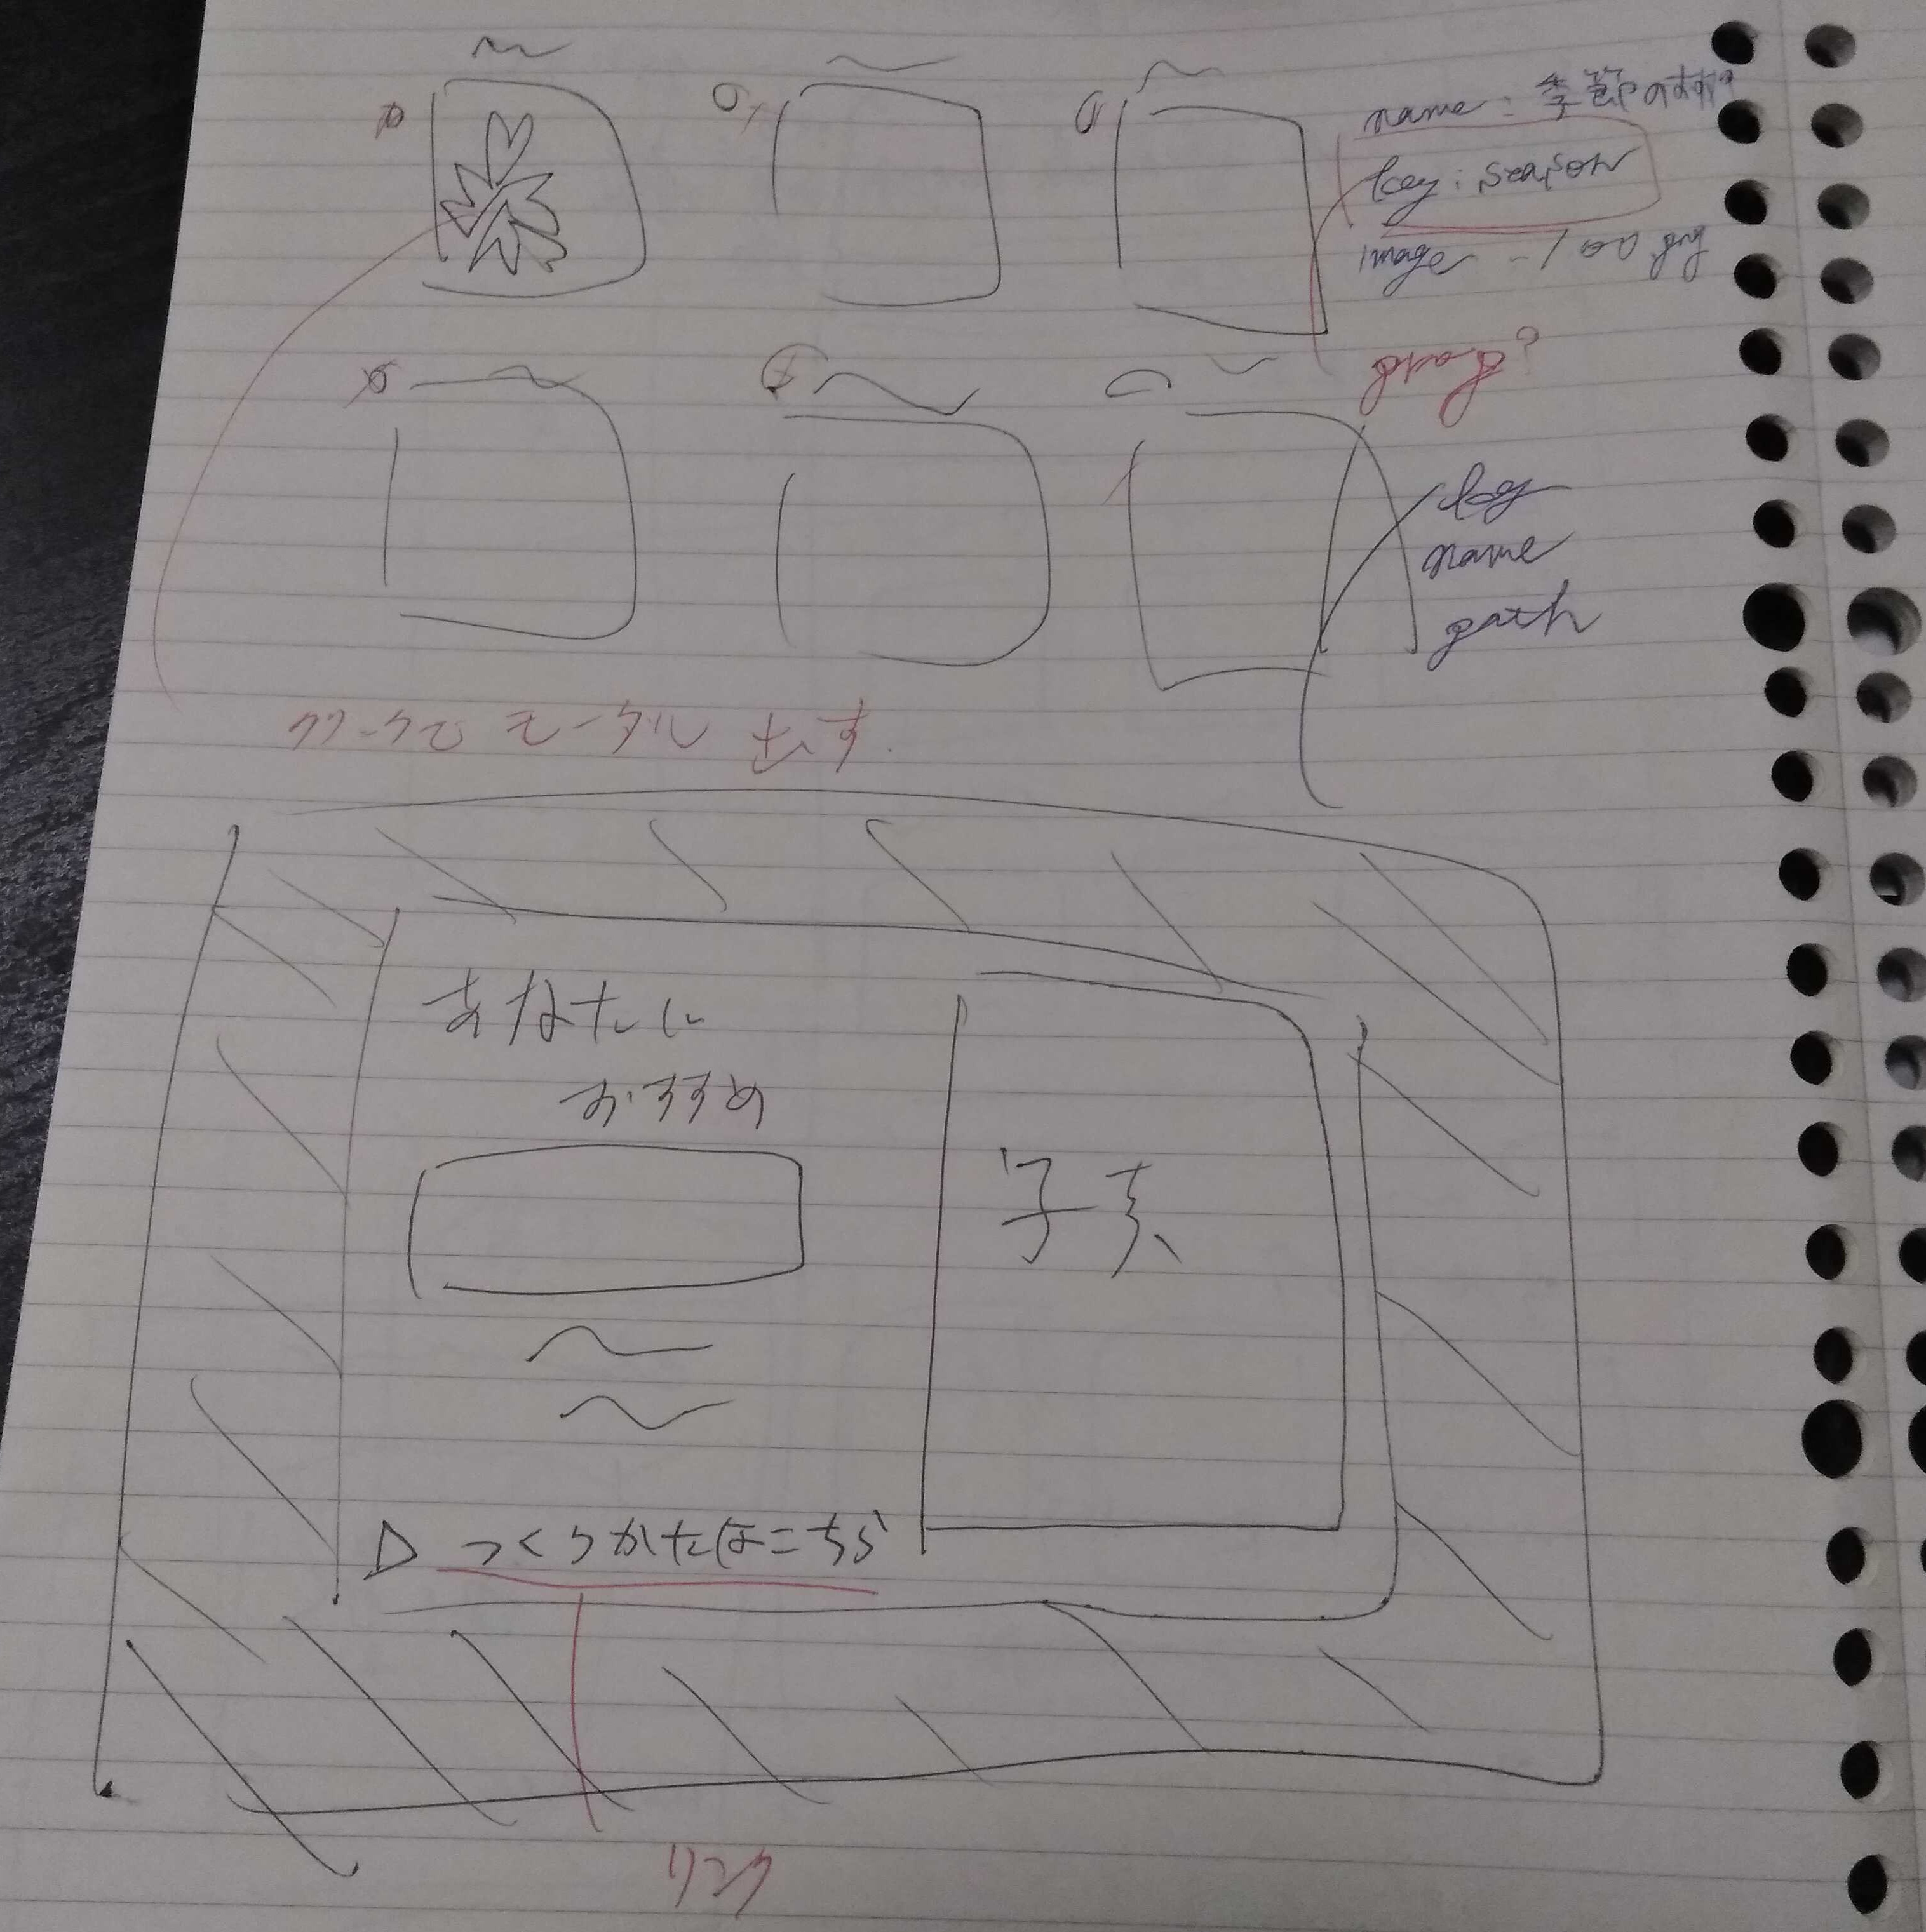 name : 季節の材料
key : season
image - 1 00.png
key
name
path
クリックで モーダル 出す.
あなたに
おすすめ
写真
▷ つくりかたはこちら
リンク